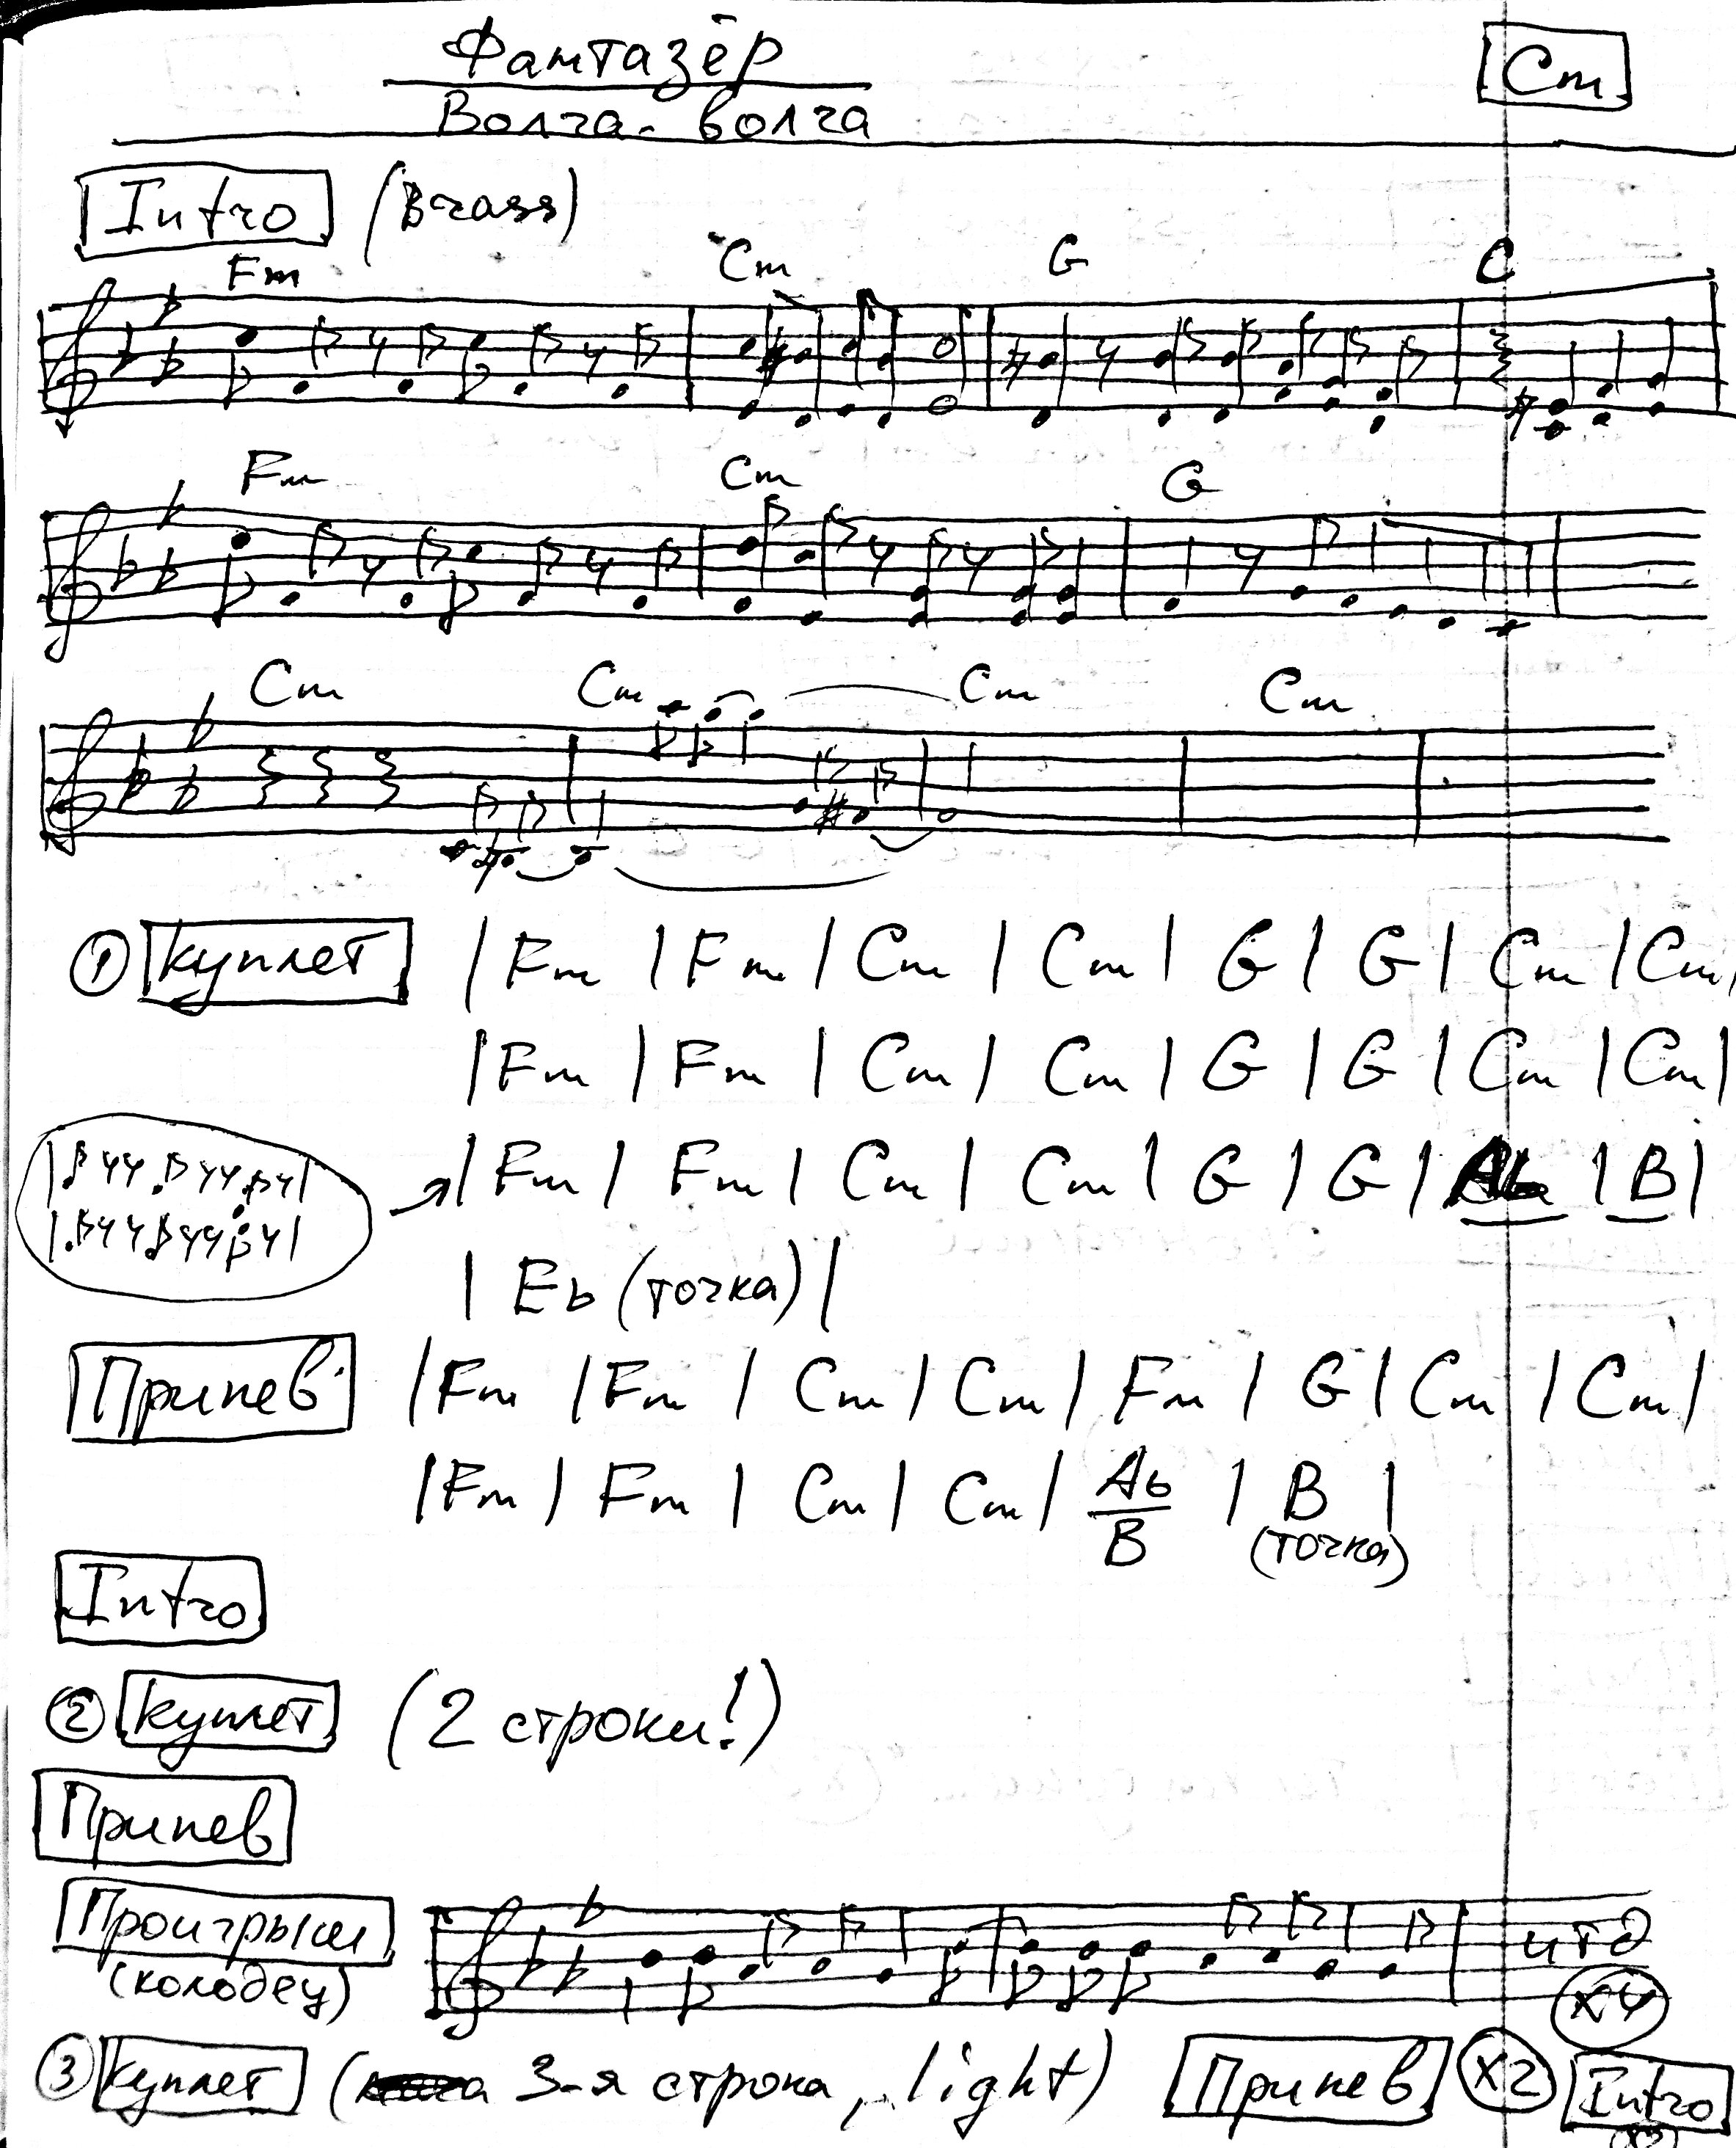 Фантазёр
Cm
Волга-волга
Intro (Brass)
Fm Cm G C
Fm Cm G
Cm Cm Cm Cm
① Куплет | Fm | Fm | Cm | Cm | G | G | Cm | Cm |
| Fm | Fm | Cm | Cm | G | G | Cm | Cm |
| Fm | Fm | Cm | Cm | G | G | Ab | B |
| Eb (точка) |
Припев | Fm | Fm | Cm | Cm | Fm | G | Cm | Cm |
| Fm | Fm | Cm | Cm | Ab/B | B |
(точка)
Intro
② Куплет (2 строки!)
Припев
Проигрыш
(колодец)
итд
x4
③ Куплет (3-я строка, light) Припев x2 Intro